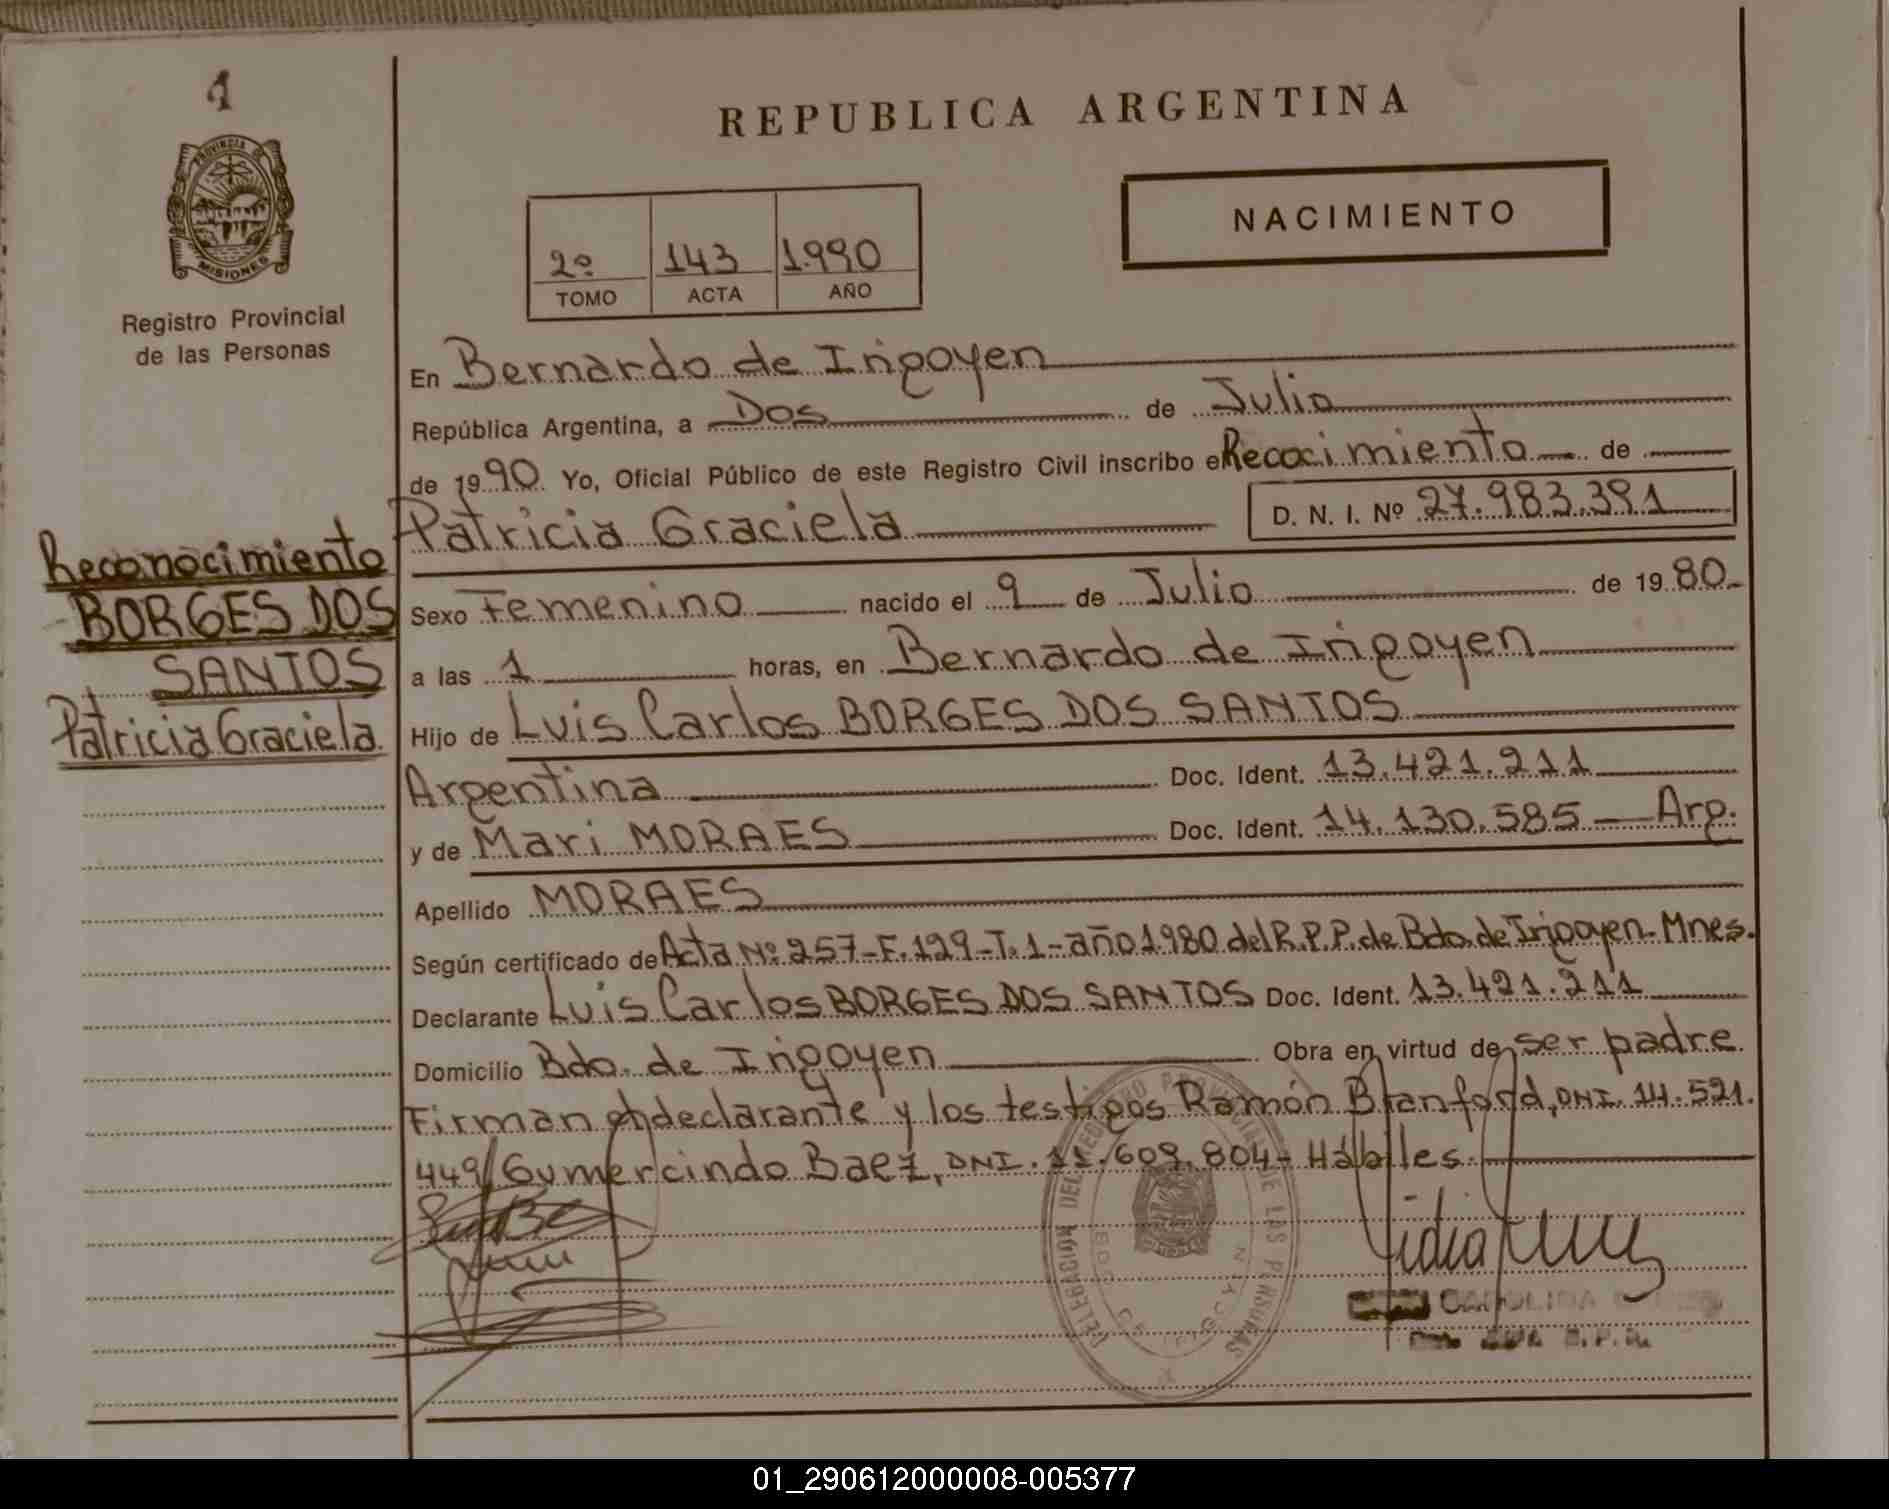 1
PROVINCIA DE
MISIONES
Registro Provincial
de las Personas
REPUBLICA ARGENTINA
NACIMIENTO
2º 143 1.990
TOMO ACTA AÑO
En Bernardo de Irigoyen
República Argentina, a Dos de Julio
de 1990 Yo, Oficial Público de este Registro Civil inscribo el Recocimiento de
Patricia Graciela D. N. I. Nº 27.983.391
Reconocimiento
BORGES DOS
SANTOS
Patricia Graciela
Sexo Femenino nacido el 9 de Julio de 1980
a las 1 horas, en Bernardo de Irigoyen
Hijo de Luis Carlos BORGES DOS SANTOS
Argentina Doc. Ident. 13.421.211
y de Mari MORAES Doc. Ident. 14.130.585 — Arg.
Apellido MORAES
Según certificado de Acta Nº 257-F.129-T.1-año 1.980 del R.P.P. de Bdo. de Irigoyen-Mnes.
Declarante Luis Carlos BORGES DOS SANTOS Doc. Ident. 13.421.211
Domicilio Bdo. de Irigoyen Obra en virtud de ser padre
Firman el declarante y los testigos Ramón Branford, DNI. 14.521.
449 Gumercindo Baez, DNI. 11.609.804- Hábiles.
DELEGACION DEL REGISTRO PROVINCIAL DE LAS PERSONAS
01_290612000008-005377